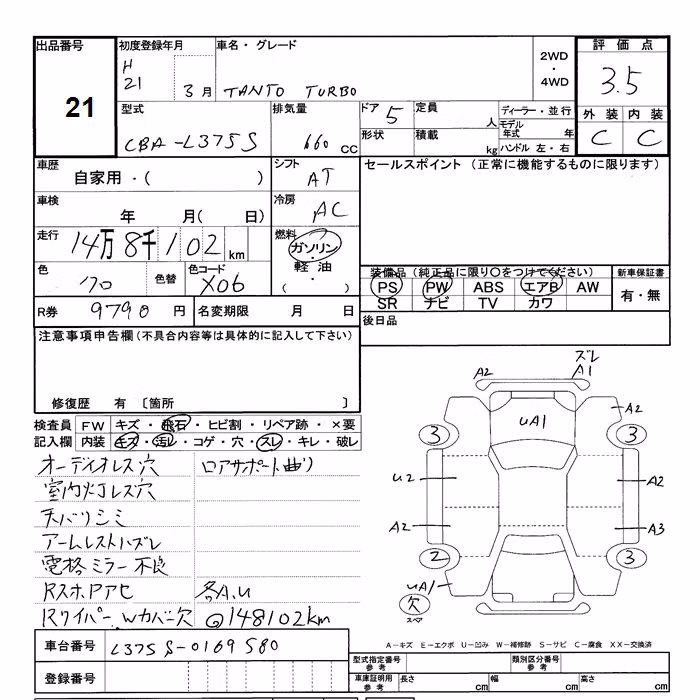 出品番号
21
初度登録年月
H
21
3月
車名・グレード
TANTO TURBO
2WD
・
4WD
評価点
3.5
型式
CBA-L375S
排気量
660 CC
ドア
5
定員
人
形状
積載
kg
ディーラー・並行
モデル
年式 年
ハンドル 左・右
外装 内装
C C
車歴
自家用・( )
シフト
AT
セールスポイント (正常に機能するものに限ります)
車検
年 月( 日)
冷房
AC
走行
14万8千102 km
燃料
ガソリン
・
軽油
・
( )
色
色替
色コード
X06
装備品(純正品に限り○をつけてください)
PS PW ABS エアB AW
SR ナビ TV カワ
新車保証書
有・無
R券
9790 円
名変期限 月 日
後日品
注意事項申告欄(不具合内容等は具体的に記入して下さい)
修復歴 有 〔箇所 〕
検査員
記入欄
FW キズ・飛石・ヒビ割・リペア跡・×要
内装 キズ・汚レ・コゲ・穴・スレ・キレ・破レ
オーディオレス穴
ロアサポート曲り
室内灯レス穴
天バリシミ
アームレストハズレ
電格ミラー不良
RスポPアセ
各A.U
Rワイパー.Wカバー欠
◎148102km
ズレ
A2 A1
UA1
A2
3 3
U2 A2
A2 A3
2 3
UA1
欠
スペア
A-キズ E-エクボ U-凹み W-補修跡 S-サビ C-腐食 XX-交換済
車台番号
L375S-0169580
登録番号
型式指定番号
参考
類別区分番号
参考
車庫証明用
参考
長さ cm
幅 cm
高さ cm